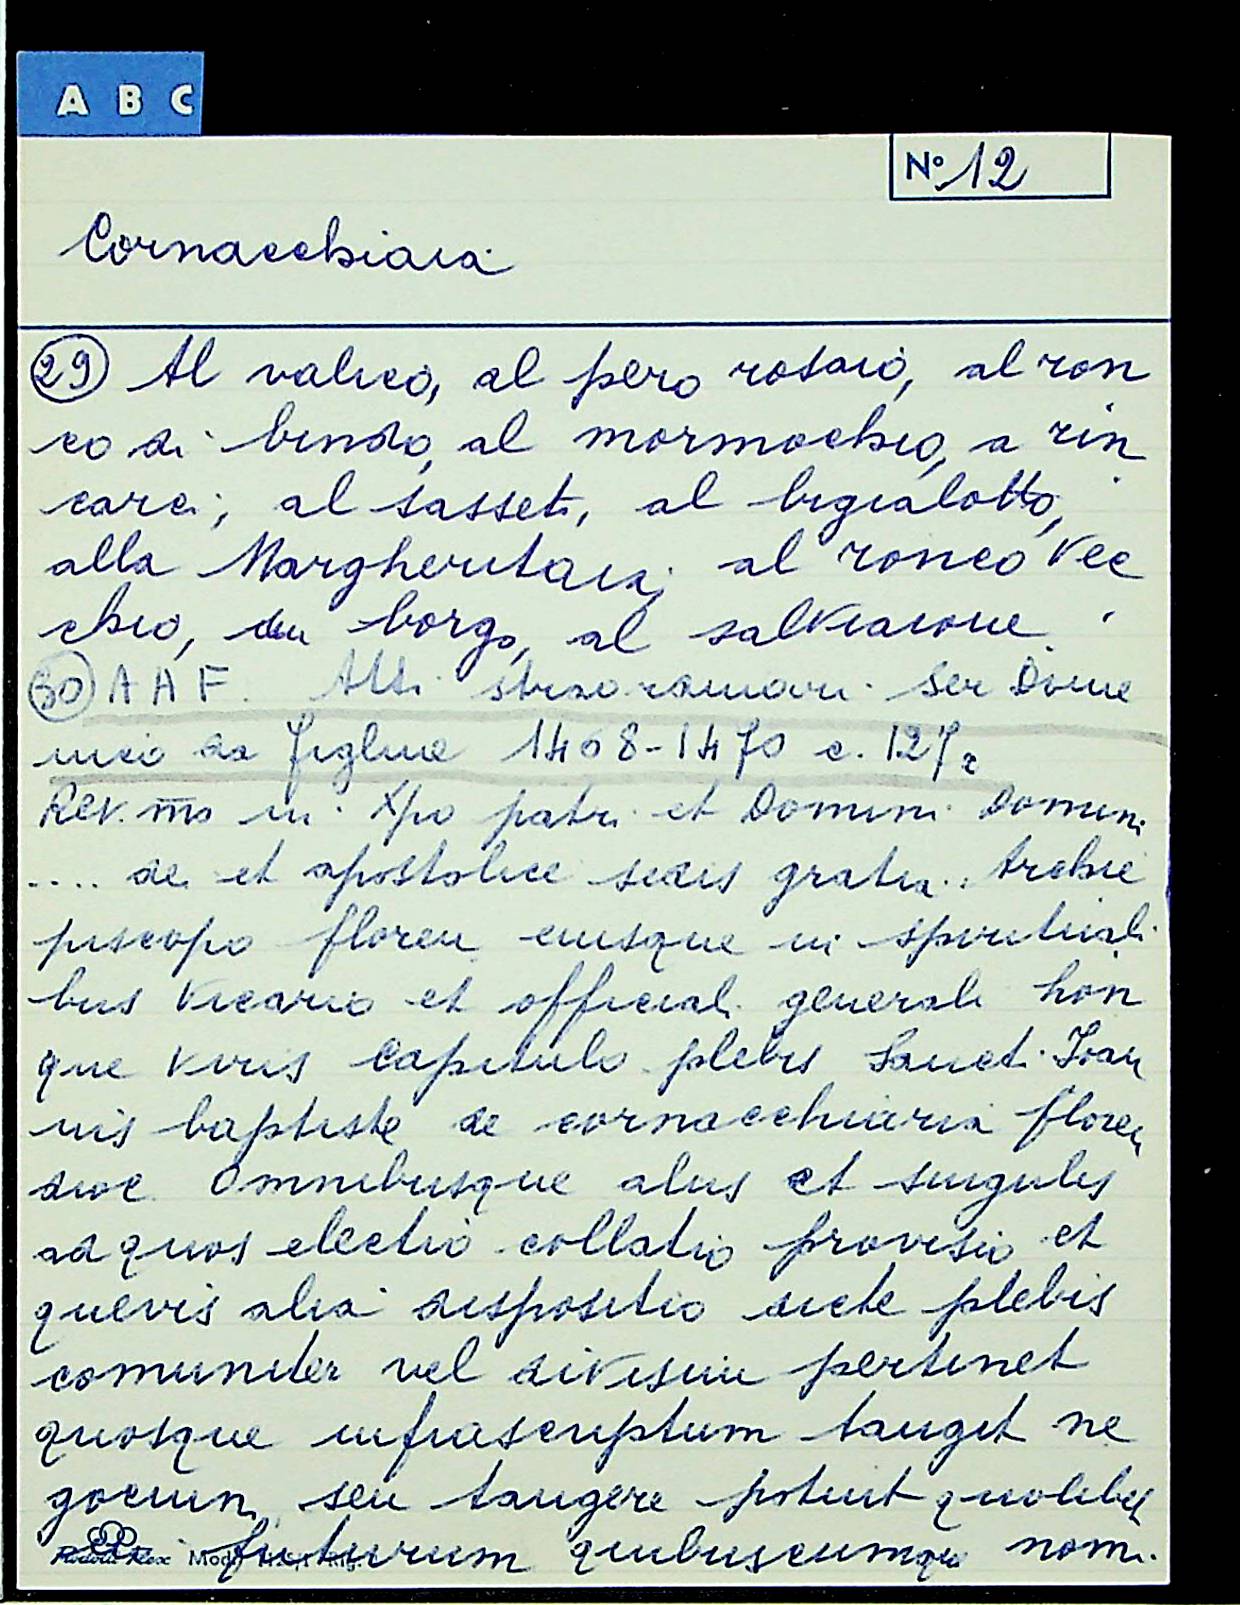 A B C
Nº 12
Cornacchiaia
29 Al valico, al pero rosaio, al ron
co di bindo, al mormochio, a rin
carei, al sasseti, al bigialotto,
alla Margheritaia, al ronco Vec
chio, du borgo, al salviaione.
30 A A F. Atti straordinari Ser Dome
nico da Figline 1468-1470 c. 127r
Rev.mo in Xpo patri et Domini Domini
.... dei et apostolice sedis gratia. Archie
piscopo floren eiusque in spirituali
bus Vicario et officiali generali hon
que Viris Capitulo plebis Sancti Ioan
nis baptiste de cornacchiaria floren
dioc Omnibusque aliis et singulis
ad quos electio collatio provisio et
quevis alia dispositio dicte plebis
comuniter vel divisim pertinet
quosque infrascriptum tanget ne
gocium, seu tangere potuit quolibet
in futurum quibuscumque nomi.